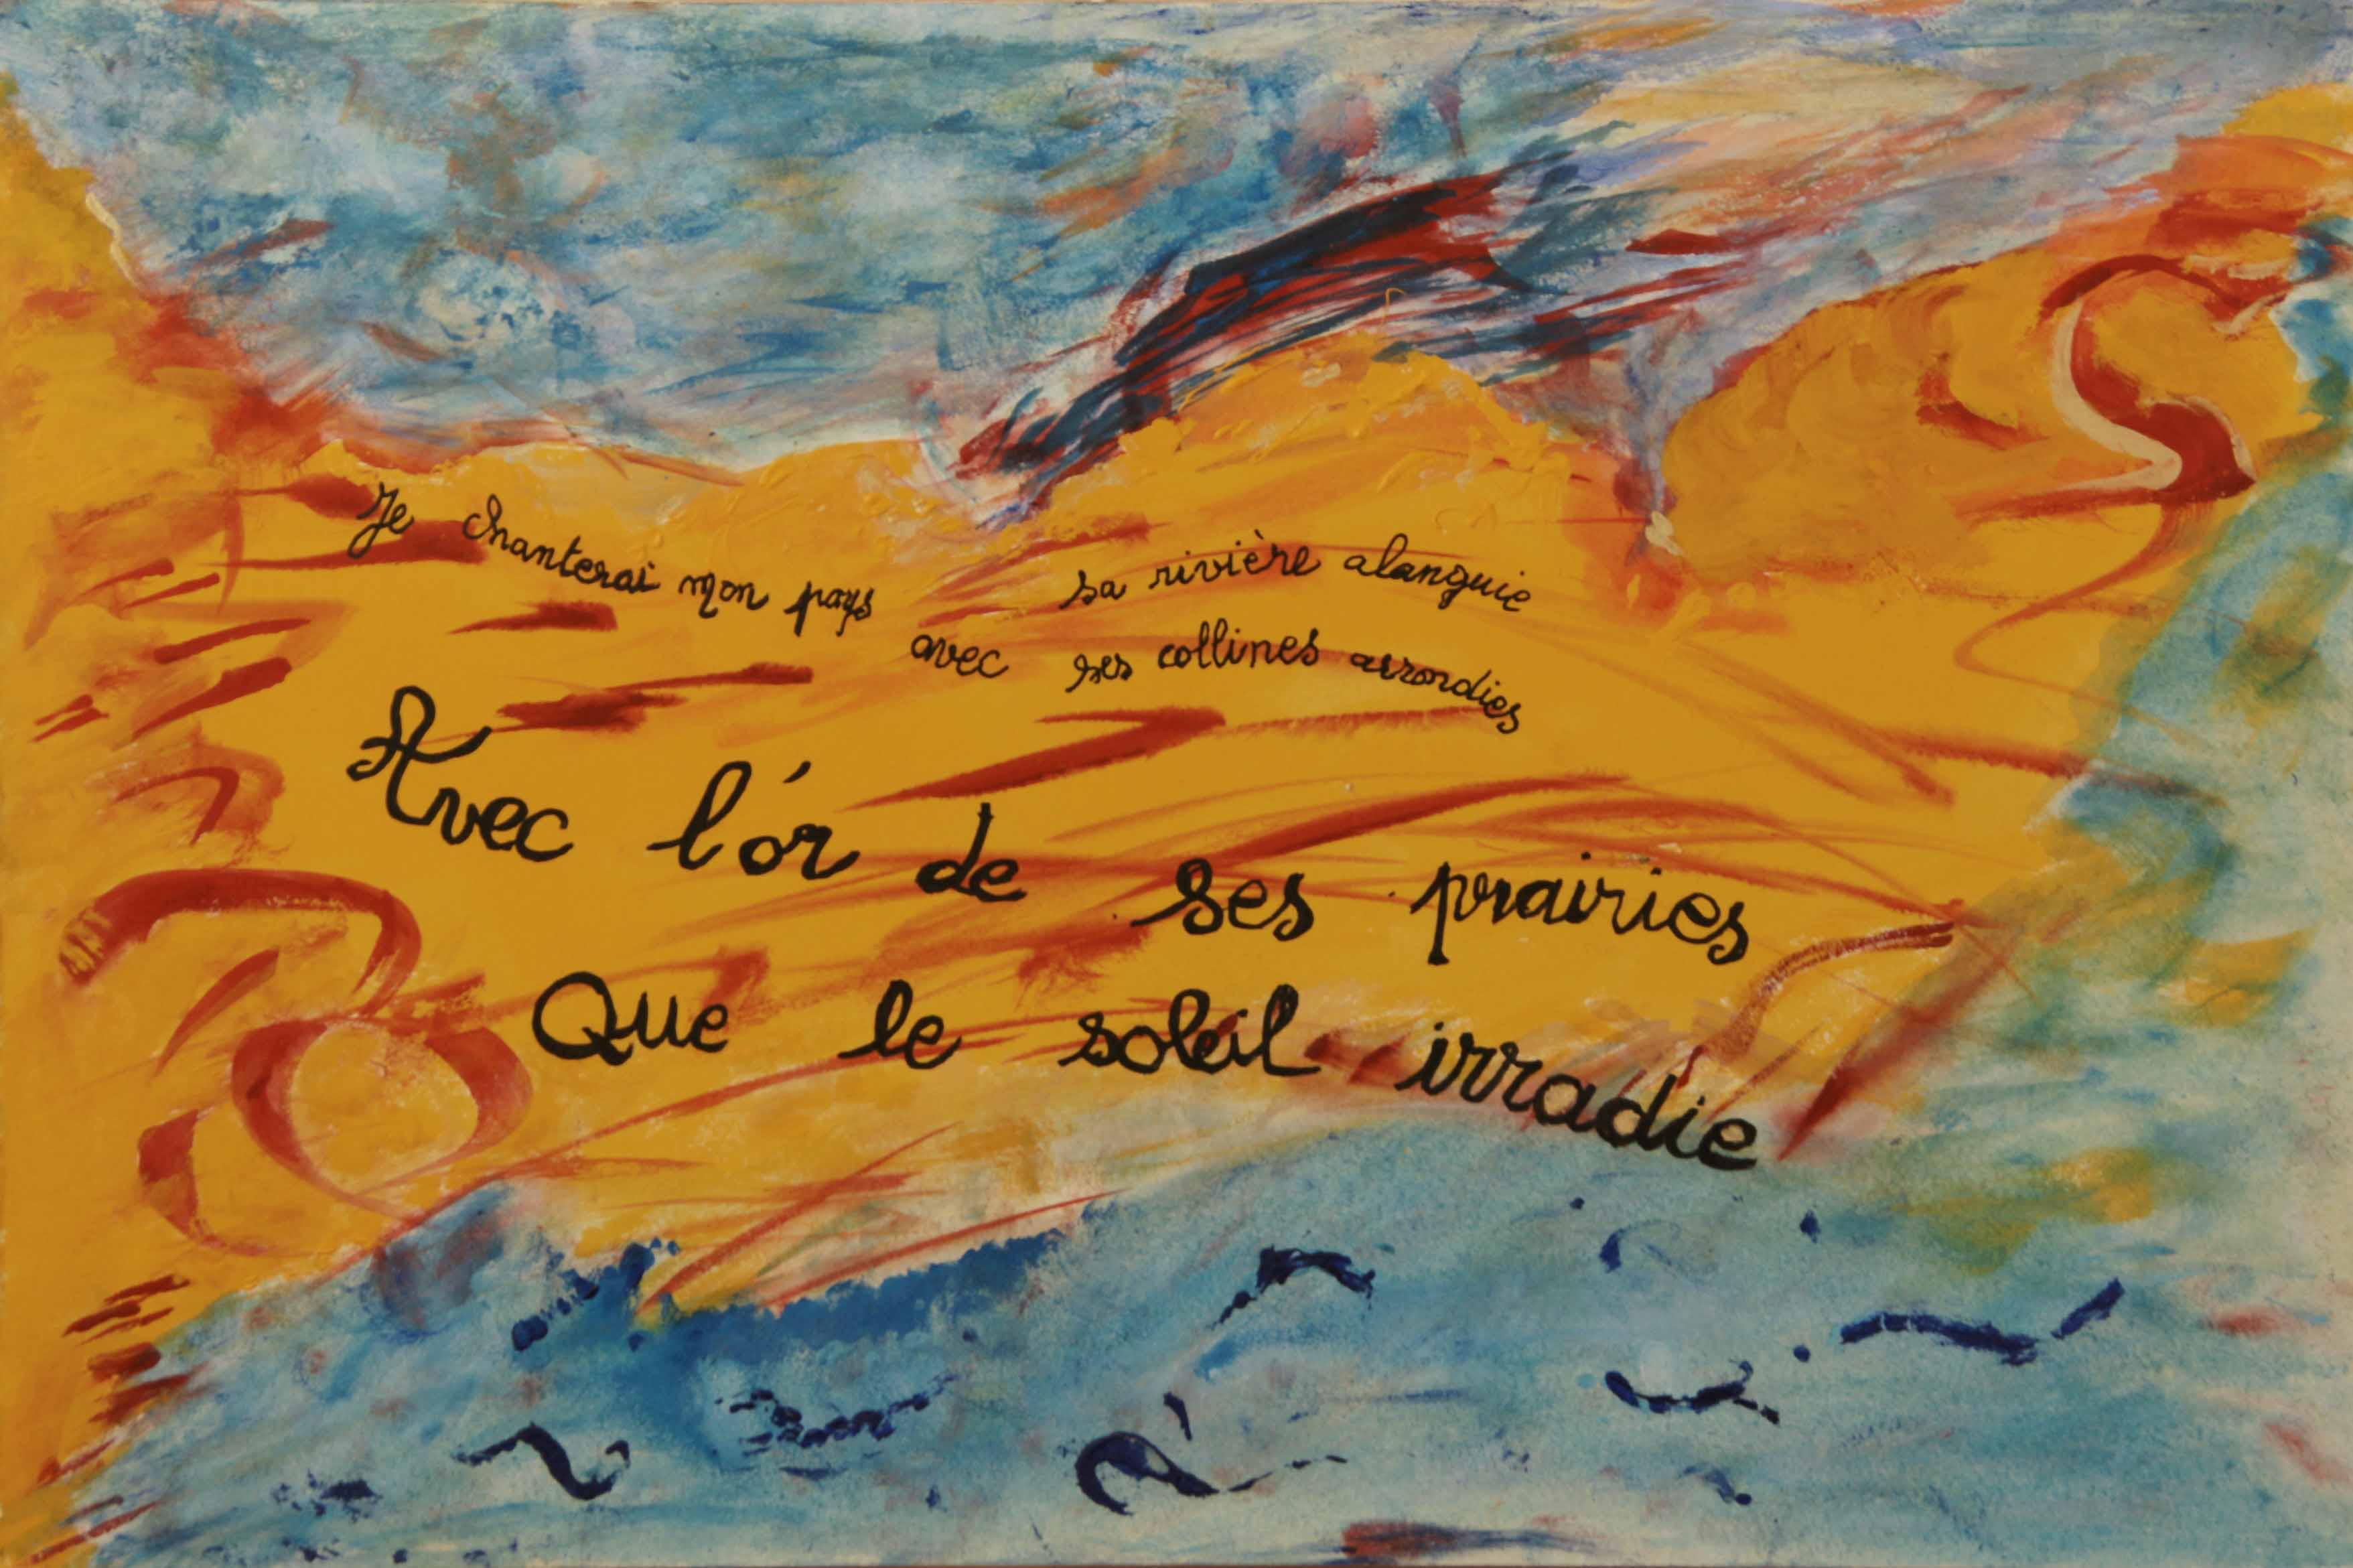 Je chanterai mon pays
avec sa rivière alanguie
ses collines arrondies
Avec l'or de ses prairies
Que le soleil irradie